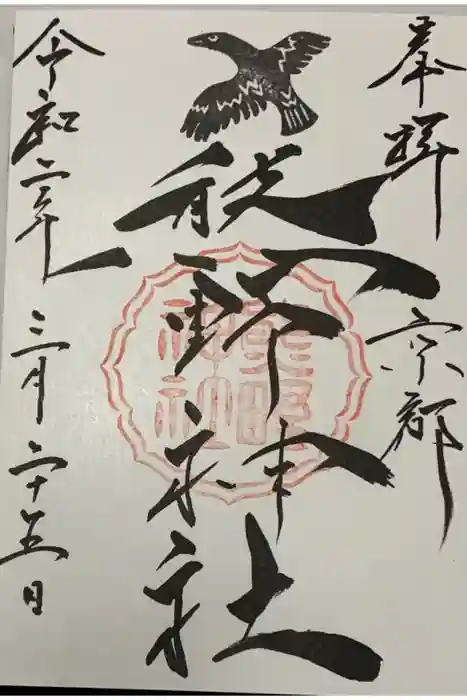 奉拝
京都
熊野神社
令和二年三月二十五日